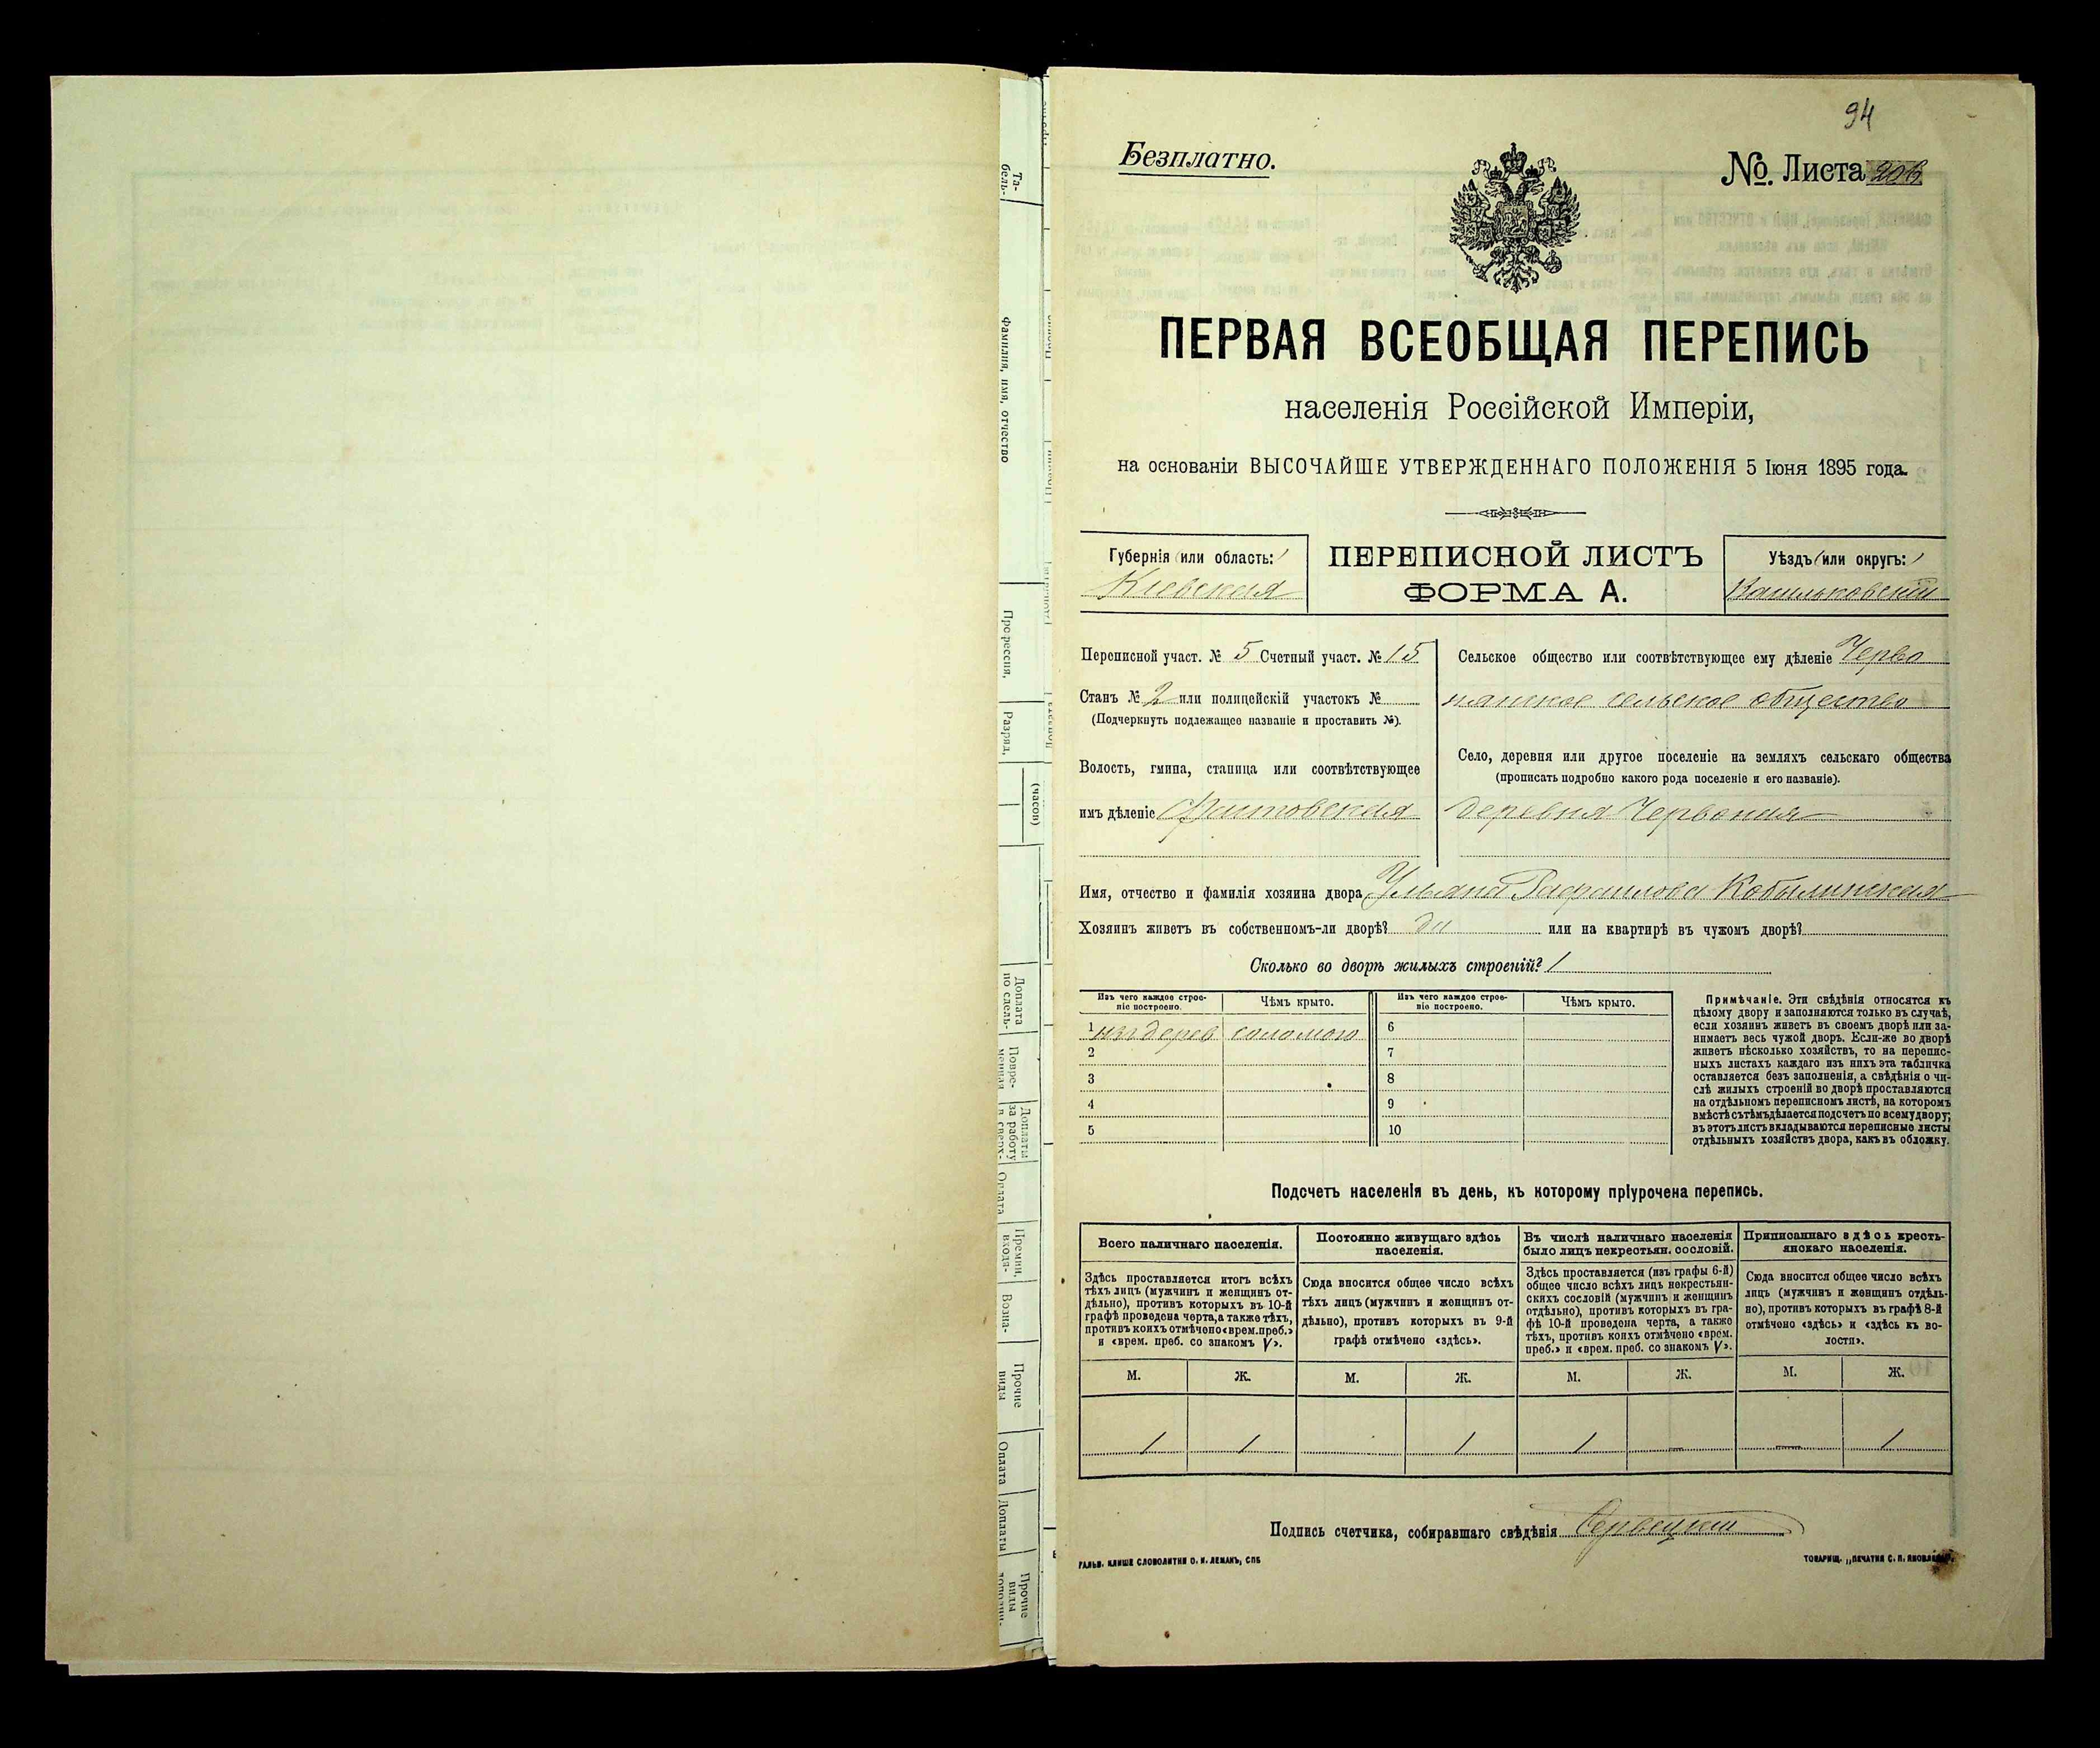 94
Безплатно.
№. Листа
ПЕРВАЯ ВСЕОБЩАЯ ПЕРЕПИСЬ
населенія Россійской Имперіи,
на основаніи ВЫСОЧАЙШЕ УТВЕРЖДЕННАГО ПОЛОЖЕНІЯ 5 Іюня 1895 года.
Губернія (или область:)
Кіевская
ПЕРЕПИСНОЙ ЛИСТЪ
ФОРМА А.
Уѣздъ (или округъ:)
Васильковскій
Переписной участ. № 5 Счетный участ. № 15
Станъ № 2 или полицейскій участокъ №
(Подчеркнуть подлежащее названіе и проставить №).
Волость, гмина, станица или соотвѣтствующее
имъ дѣленіе Фастовская
Сельское общество или соотвѣтствующее ему дѣленіе Черво
нянское сельское общество
Село, деревня или другое поселеніе на земляхъ сельскаго общества
(прописать подробно какого рода поселеніе и его названіе).
деревня Червоная
Имя, отчество и фамилія хозяина двора Ульяна Рафаилова Кобылинская
Хозяинъ живетъ въ собственномъ-ли дворѣ? да или на квартирѣ въ чужомъ дворѣ?
Сколько во дворѣ жилыхъ строеній? 1
Изъ чего каждое строе-
ніе построено.
Чѣмъ крыто.
Изъ чего каждое строе-
ніе построено.
Чѣмъ крыто.
1 изъ дерев соломою 6
2 7
3 8
4 9
5 10
Примѣчаніе. Эти свѣдѣнія относятся къ
цѣлому двору и заполняются только въ случаѣ,
если хозяинъ живетъ въ своемъ дворѣ или за-
нимаетъ весь чужой дворъ. Если-же во дворѣ
живетъ нѣсколько хозяйствъ, то на перепис-
ныхъ листахъ каждаго изъ нихъ эта табличка
оставляется безъ заполненія, а свѣдѣнія о чи-
слѣ жилыхъ строеній во дворѣ проставляются
на отдѣльномъ переписномъ листѣ, на которомъ
вмѣстѣ съ тѣмъ дѣлается подсчетъ по всему двору;
въ этотъ листъ вкладываются переписные листы
отдѣльныхъ хозяйствъ двора, какъ въ обложку.
Подсчетъ населенія въ день, къ которому пріурочена перепись.
Всего наличнаго населенія.
Здѣсь проставляется итогъ всѣхъ
тѣхъ лицъ (мужчинъ и женщинъ от-
дѣльно), противъ которыхъ въ 10-й
графѣ проведена черта, а также тѣхъ,
противъ коихъ отмѣчено «врем. преб.»
и «врем. преб. со знакомъ V».
Постоянно живущаго здѣсь
населенія.
Сюда вносится общее число всѣхъ
тѣхъ лицъ (мужчинъ и женщинъ от-
дѣльно), противъ которыхъ въ 9-й
графѣ отмѣчено «здѣсь».
Въ числѣ наличнаго населенія
было лицъ некрестьян. сословій.
Здѣсь проставляется (изъ графы 6-й)
общее число всѣхъ лицъ некрестьян-
скихъ сословій (мужчинъ и женщинъ
отдѣльно), противъ которыхъ въ гра-
фѣ 10-й проведена черта, а также
тѣхъ, противъ коихъ отмѣчено «врем.
преб.» и «врем. преб. со знакомъ V».
Приписаннаго здѣсь кресть-
янскаго населенія.
Сюда вносится общее число всѣхъ
лицъ (мужчинъ и женщинъ отдѣль-
но), противъ которыхъ въ графѣ 8-й
отмѣчено «здѣсь» и «здѣсь къ во-
лости».
М. Ж. М. Ж. М. Ж. М. Ж.
1 1 1 1 — — 1
Подпись счетчика, собиравшаго свѣдѣнія
ГАЛЬВ. КЛИШЕ СЛОВОЛИТНИ О. И. ЛЕМАНЪ, СПБ
ТОВАРИЩ. „ПЕЧАТНЯ С. П. ЯКОВЛЕВА".
Та-
бель-
Фамилия, имя, отчество
Профессия,
Разряд,
(часов)
Доплата
по сдель-
Повре-
менная
Доплаты
за работу
в сверх-
Оплата
Премии,
входя-
Возна-
Прочие
виды
Оплата
Доплаты
Прочие
виды